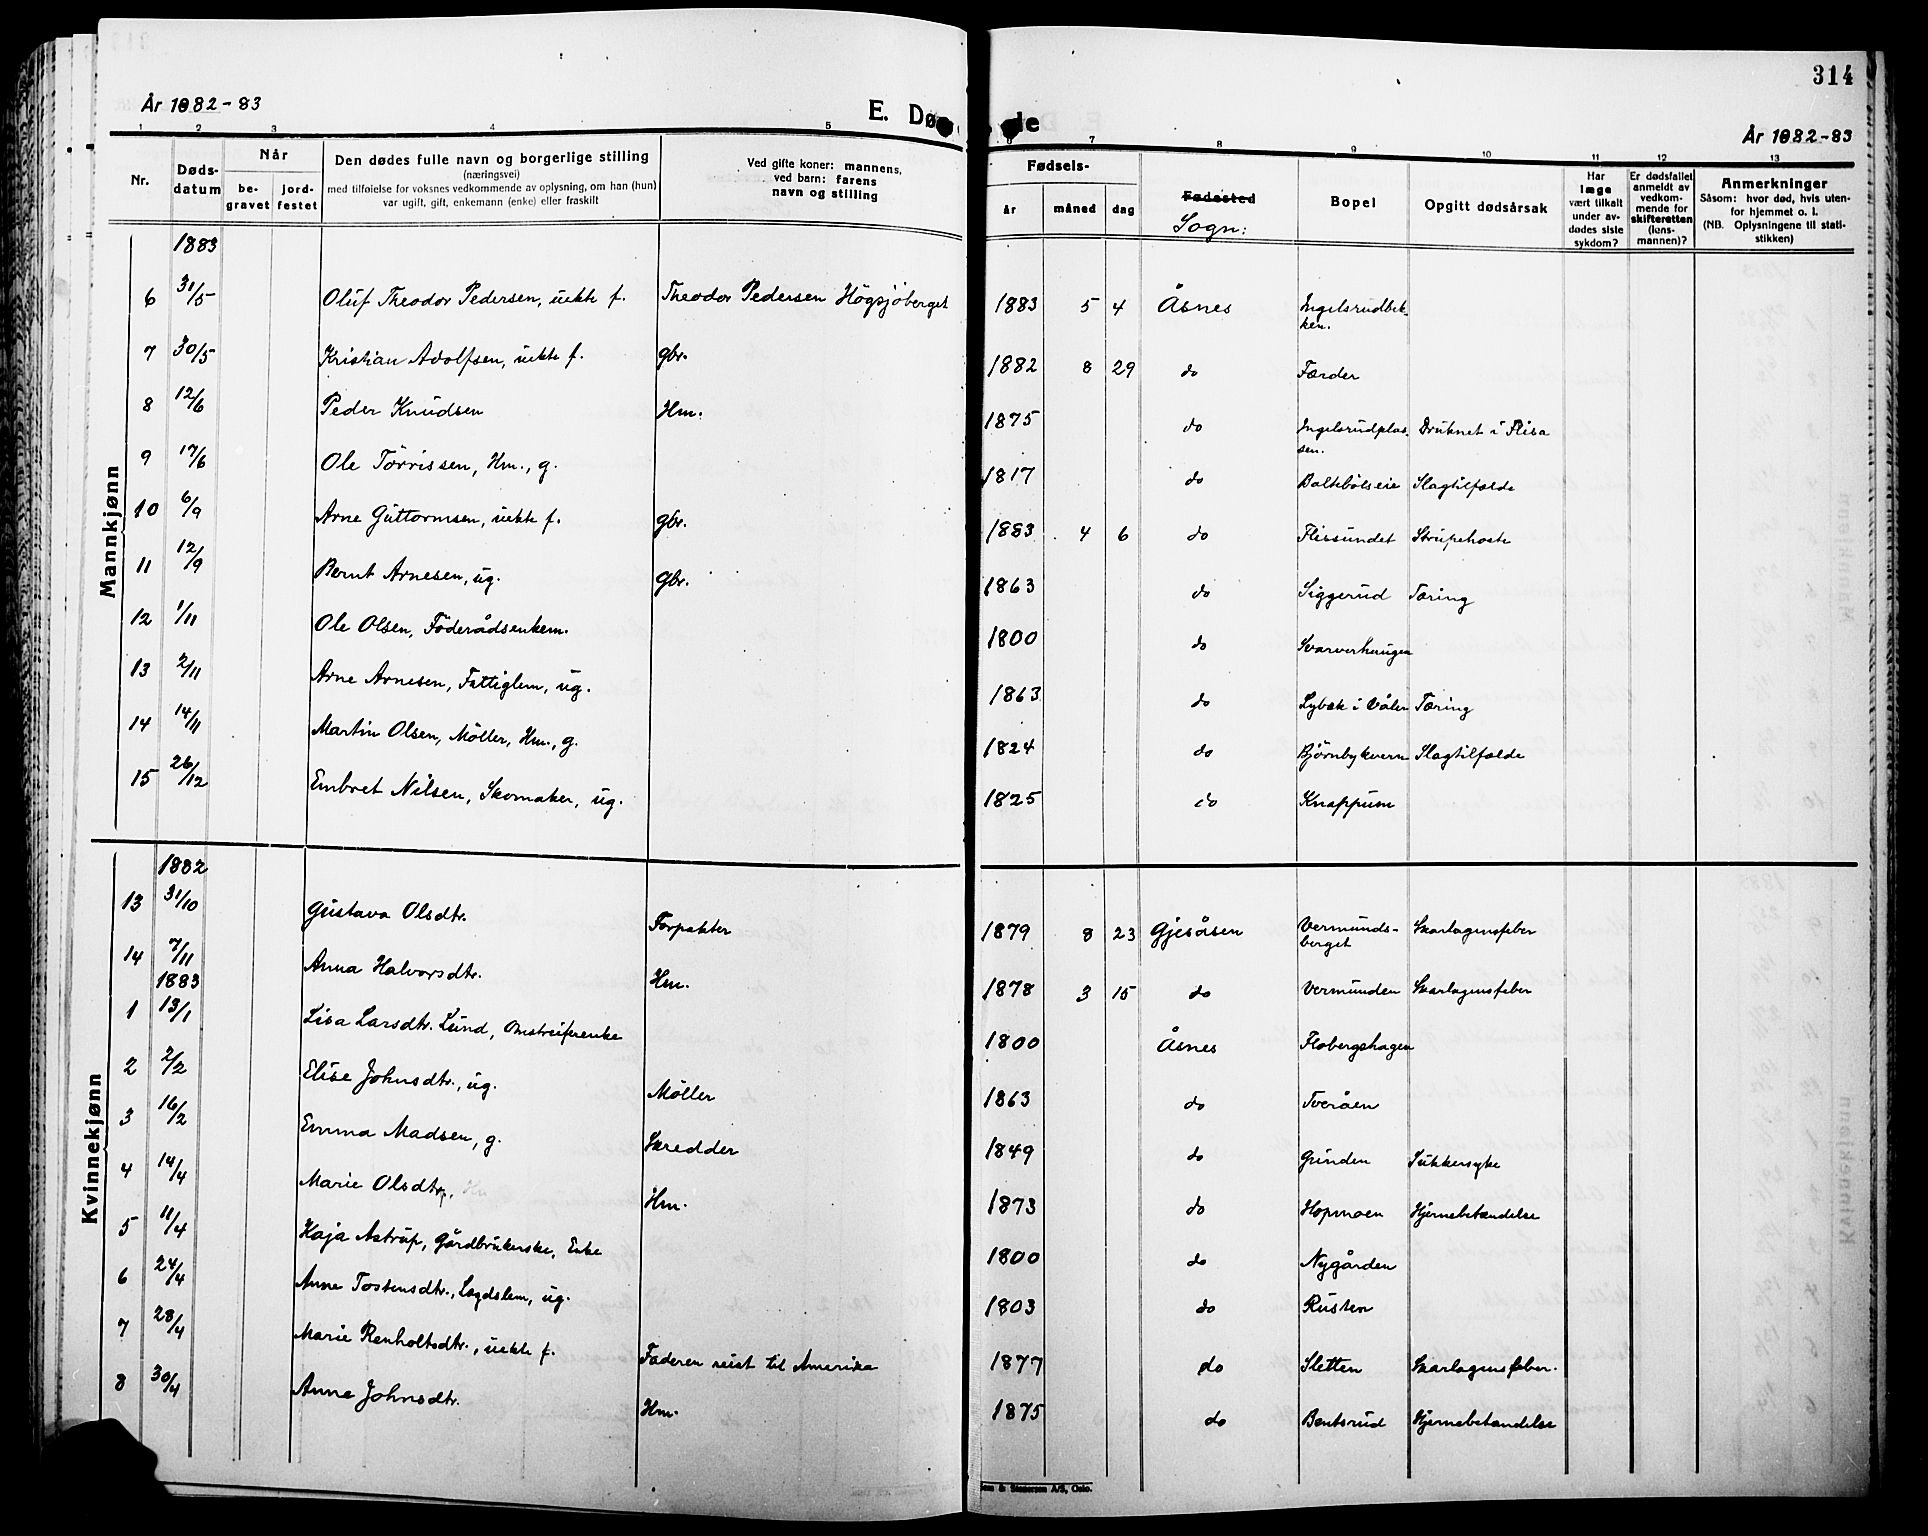 314
År 1882-83
E. Dø de
År 1882-83
1 2 3 4 5 6 7 8 9 10 11 12 13
Nr.
Døds-
datum
Når
be-
gravet
jord-
festet
Den dødes fulle navn og borgerlige stilling
(næringsvei)
med tilføielse for voksnes vedkommende av oplysning, om han (hun)
var ugift, gift, enkemann (enke) eller fraskilt
Ved gifte koner: mannens,
ved barn: farens
navn og stilling
Fødsels-
år måned dag
Fødested
Sogn:
Bopel
Opgitt dødsårsak
Har
læge
vært tilkalt
under av-
dødes siste
sykdom?
Er dødsfallet
anmeldt av
vedkom-
mende for
skifteretten
(lens-
mannen)?
Anmerkninger
Såsom: hvor død, hvis uten-
for hjemmet o. l.
(NB. Oplysningene til stati-
stikken)
Mannkjønn
1883
6 31/5 Oluf Theodor Pedersen, uekte f. Theodor Pedersen Högsjöberget 1883 5 4 Åsnes Ingelsrudbek-
ken.
7 30/5 Kristian Adolfsen, uekte f. gbr. 1882 8 29 do Færder
8 12/6 Peder Knudsen Hm. 1875 do Ingelsrudplas- Druknet i Flisa
sen.
9 17/6 Ole Törrissen, Hm., g. 1817 do Baltebölseie Slagtilfælde
10 6/9 Arne Guttormsen, uekte f. gbr. 1883 4 6 do Flissundet Strupehoste
11 12/9 Bernt Arnesen, ug. Gbr. 1863 do Siggerud Tæring
12 1/11 Ole Olsen, Föderådsenkem. 1800 do Svarverhaugen
13 2/11 Arne Arnesen, Fattiglem, ug. 1863 do Lybæk i Våler Tæring
14 14/11 Martin Olsen, Möller, Hm., g. 1824 do Bjørnbykvern Slagtilfælde
15 26/12 Embret Nilsen, Skomaker, ug. 1825 do Knappum
Kvinnekjønn
1882
13 31/10 Gustava Olsdtr. Forpakter 1879 8 23 Gjesåsen Vermunds- Skarlagensfeber
berget
14 7/11 Anna Halvorsdtr. Hm. 1878 3 15 do Vermunden Skarlagensfeber
1883
1 13/1 Lisa Larsdtr. Lund, Omstreiferenke 1800 Åsnes Flobergshagen
2 2/2 Elise Johnsdtr., ug. Möller 1863 do Tveråen
3 16/2 Emma Madsen, g. Skredder 1849 do Grinden Sukkersyke
4 14/4 Marie Olsdtr. Hm. 1873 do Hopmoen Hjernebetændelse
5 11/4 Kaja Astrup, Gårdbrukerske, Enke 1800 do Nygården
6 24/4 Anne Tostensdtr., Lægdslem, ug. 1803 do Rusten
7 28/4 Marie Renholtsdtr., uekte f. Faderen reist til Amerika 1877 do Sletten Skarlagensfeber.
8 30/4 Anne Johnsdtr. Hm. 1875 do Bentsrud Hjernebetændelse
A/S, Oslo.